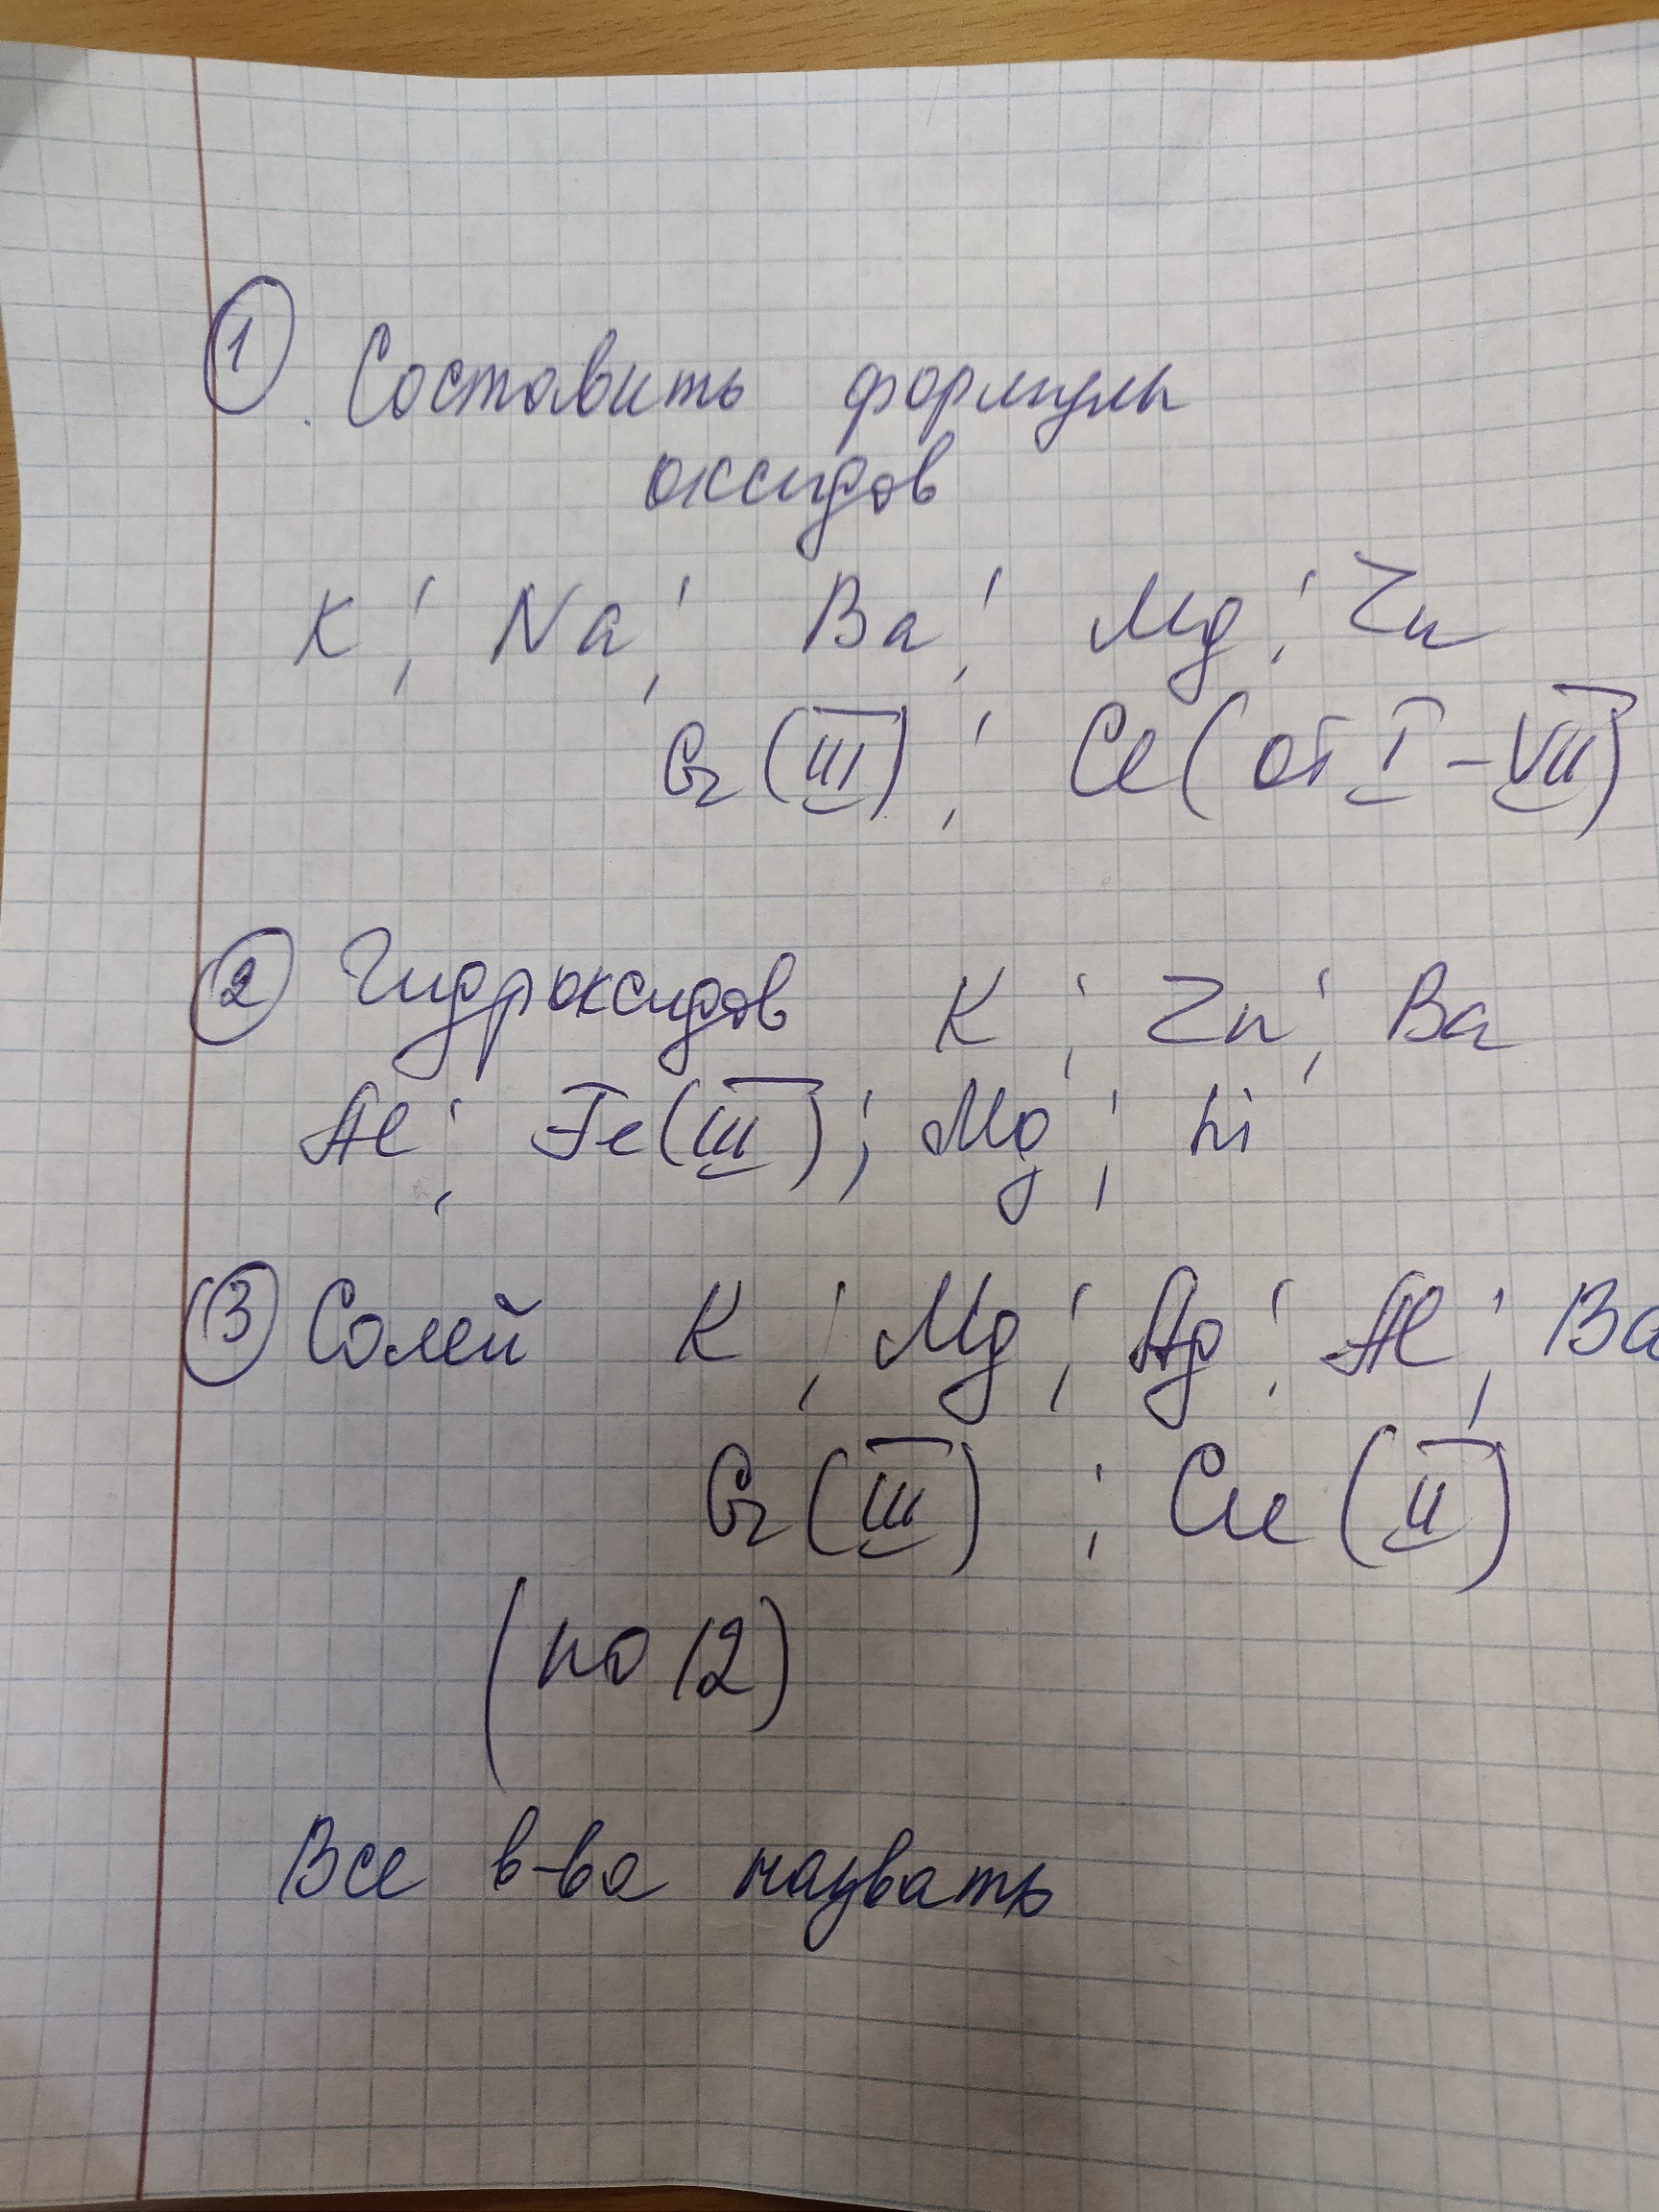 ① . Составить формулы
оксидов
K ; Na ; Ba ; Mg ; Zn
Cr (III) ; Cl (от I – VII)
② Гидроксидов K ; Zn ; Ba
Al ; Fe (III) ; Mg ; Li
③ Солей K ; Mg ; Ag ; Al ; Ba
Cr (III) ; Cu (II)
(по 12)
Все в-ва назвать